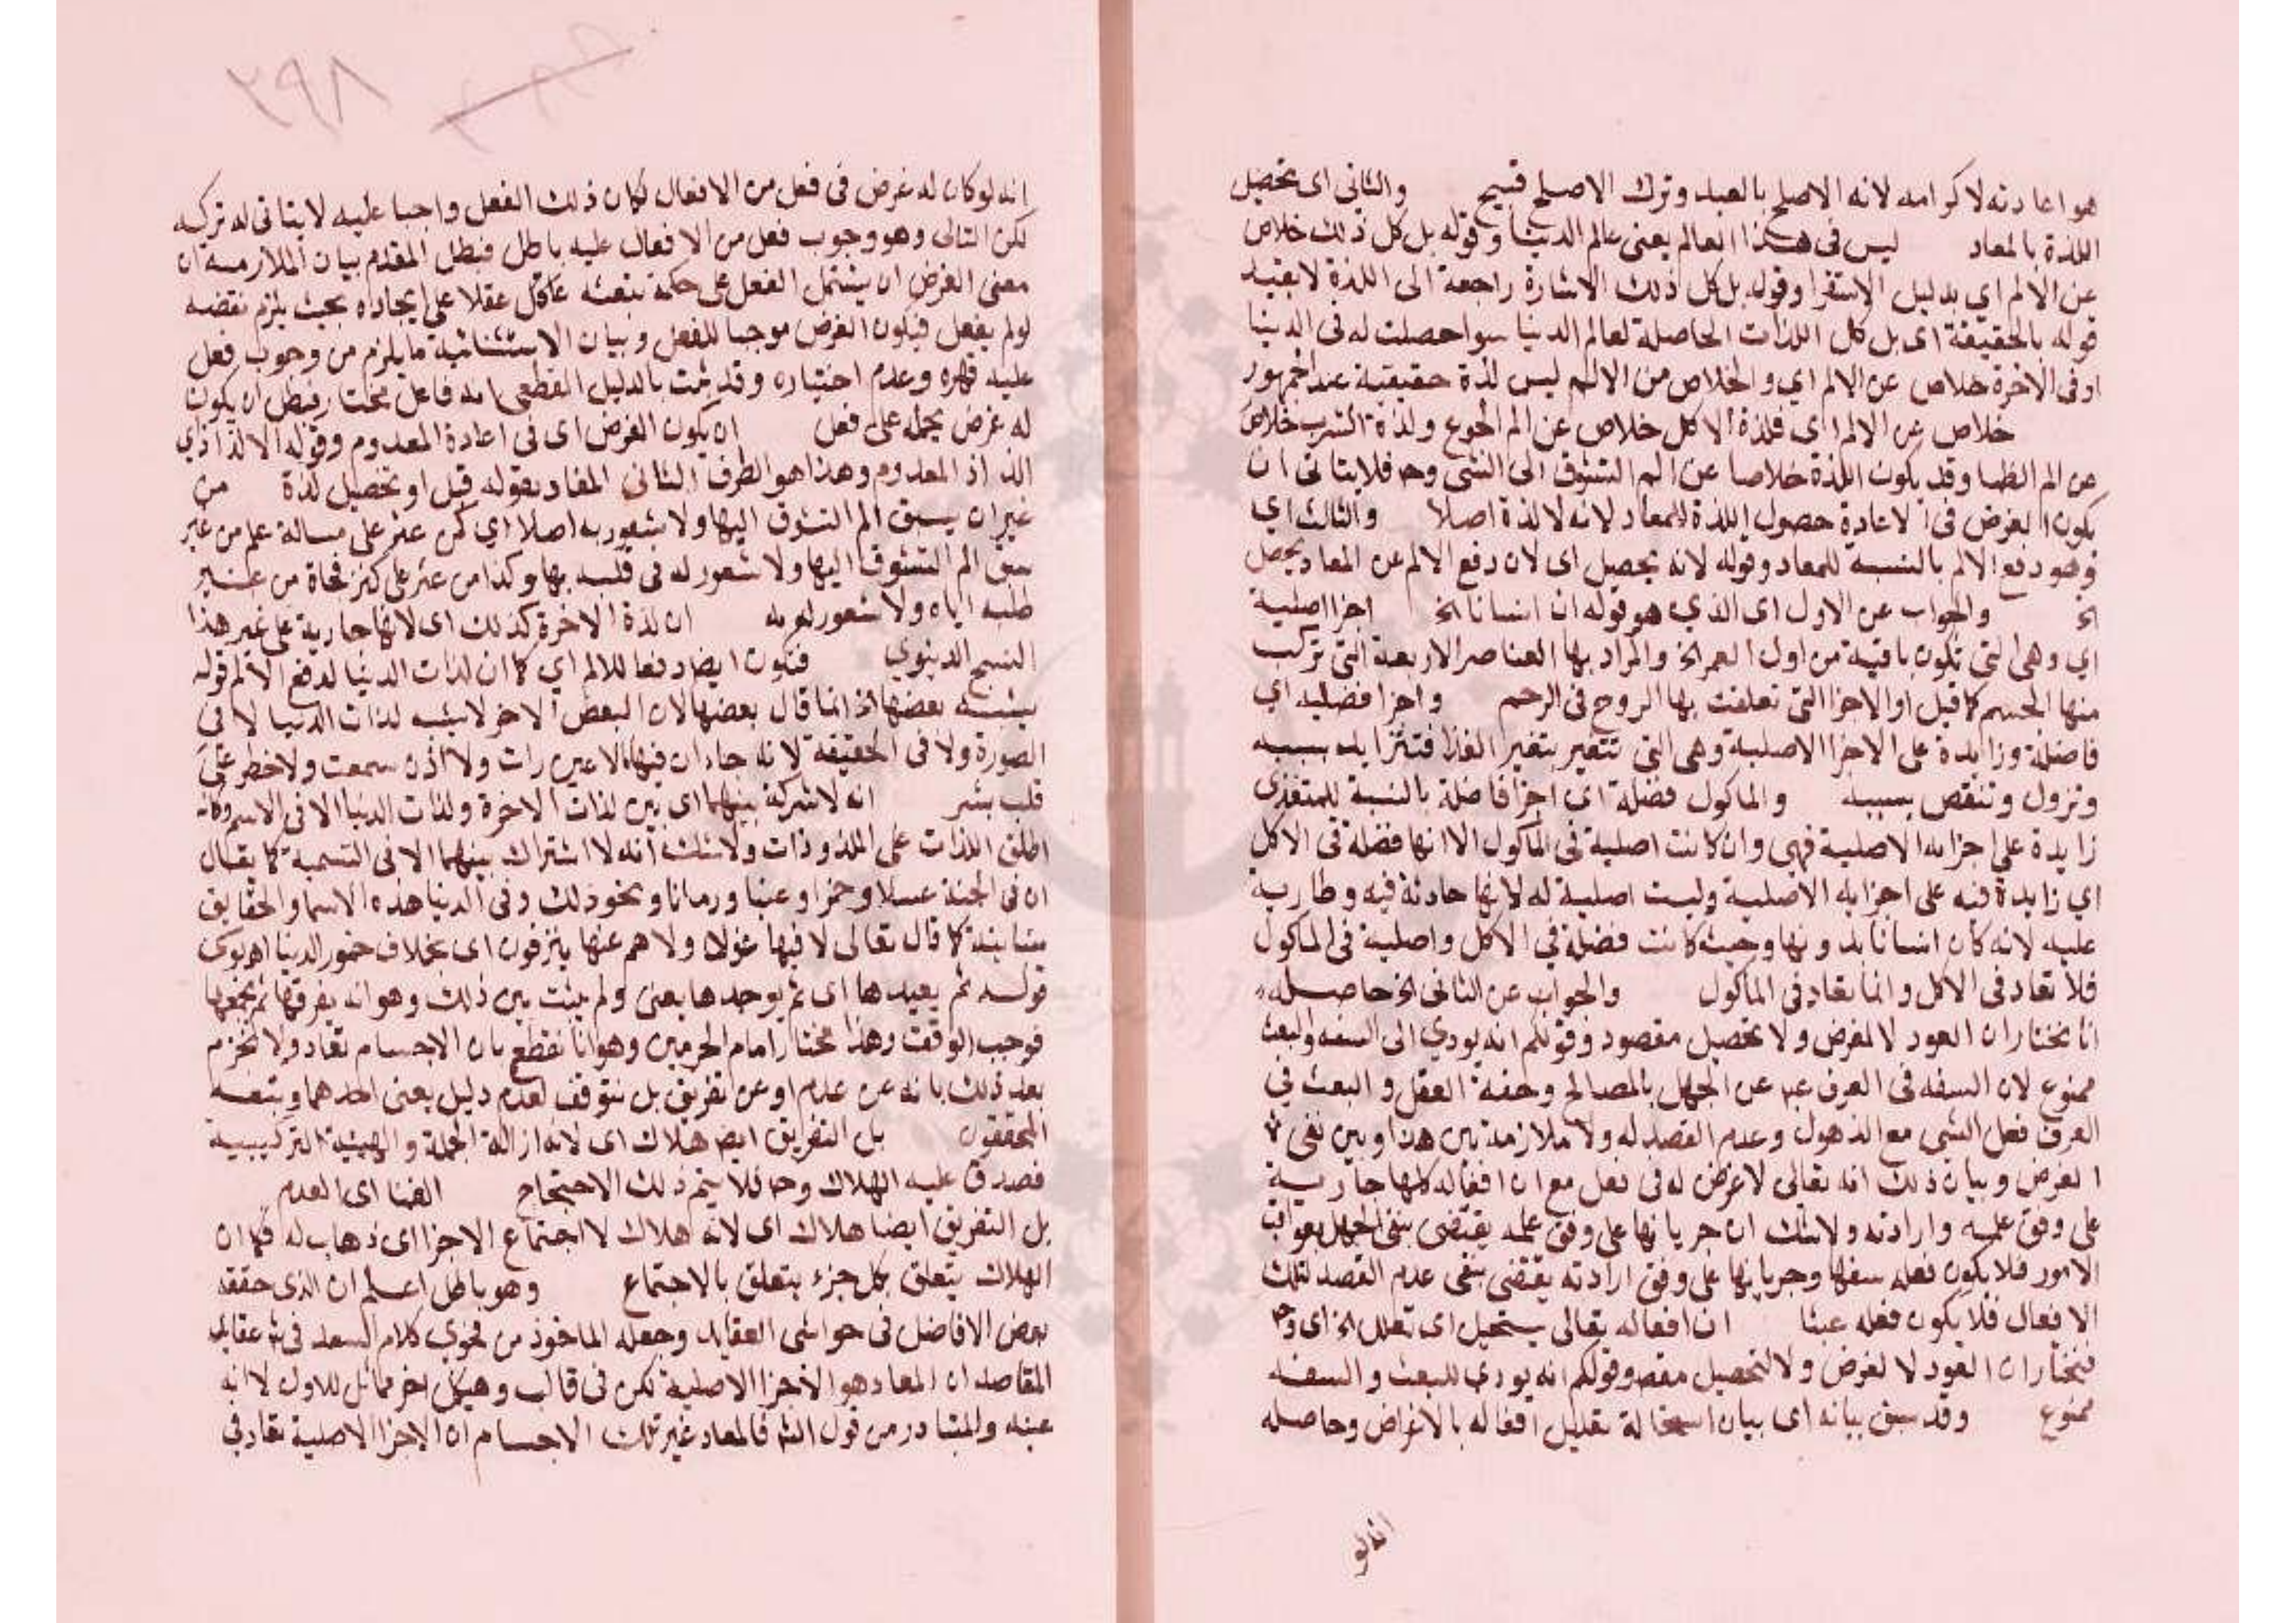 هو اعادته لاكرامه لانه الاصلح بالعبد وترك الاصلح قبيح والثاني اى تحصيل
اللذة بالمعاد ليس فى هذا العالم يعنى عالم الدنيا وقوله بل كل ذلك خلاص
عن الالم اي بدليل الاستقرا وقوله بل كل ذلك الاشارة راجعة الى اللذة لا بقيد
قوله بالحقيقة اى بل كل اللذات الحاصلة لعالم الدنيا سوا حصلت له فى الدنيا
او فى الاخرة خلاص عن الالم اي والخلاص من الالم ليس لذة حقيقية عند الجمهور
خلاص عن الالم اى فلذة الاكل خلاص عن الم الجوع ولذة الشرب خلاص
عن الم الظما وقد يكون اللذة خلاصا عن الم التشوق الى الشى وح فلا يتاتى ان
يكون الغرض فى الاعادة حصول اللذة للمعاد لانه لا لذة اصلا والثالث اي
وهو دفع الالم بالنسبة للمعاد وقوله لانه يحصل اى لان دفع الالم عن المعاد يحصل
الخ والجواب عن الاول اى الذي هو قوله ان انسانا الخ اجزا اصلية
اي وهى التي تكون باقية من اول العمر الخ والمراد بها العناصر الاربعة التى تركب
منها الجسم كما قيل او الاجزا التى تعلقت بها الروح فى الرحم واجزا فضلية اي
فاضلة وزايدة على الاجزا الاصلية وهى التى تتغير بتغير الغذا فتتزايد بسببه
وتزول وتنقص بسببه والماكول فضلة اى اجزا فاضلة بالنسبة للمتغذى
زايدة على اجزايه الاصلية فهى وان كانت اصلية فى الماكول الا انها فضلة فى الاكل
اي زايدة فيه على اجزايه الاصلية وليست اصلية له لانها حادثة فيه وطارية
عليه لانه كان انسانا بدونها وحيث كانت فضلة في الاكل واصلية فى الماكول
فلا تعاد فى الاكل وانما تعاد فى الماكول والجواب عن الثانى الخ حاصله
انا نختار ان العود لا لغرض ولا تحصيل مقصود وقولكم انه يودي الى السفه والعبث
ممنوع لان السفه فى العرف عبـ عن الجهل بالمصالح وخفة العقل و العبث في
العرف فعل الشى مع الذهول وعدم القصد له ولا ملازمة بين هذا وبين نفى
الغرض وبيان ذلك انه تعالى لا غرض له فى فعل مع ان افعاله كلها جارية
على وفق علمه وارادته ولا شك ان جريانها على وفق علمه يقتضى نفى الجهل بعواقب
الامور فلا يكون فعله سفها وجريانها على وفق ارادته يقتضى نفى عدم القصد لتلك
الافعال فلا يكون فعله عبثا ان افعاله تعالى يستحيل اى تعلل الخ اى وح
فنختار ان العود لا لغرض ولا لتحصيل مقصـ وقولكم انه يودي للعبث والسفه
ممنوع وقد سبق بيانه اى بيان استحالة تعليل افعاله بالاغراض وحاصله
انه لو
٨٩٢
انه لو كان له غرض فى فعل من الافعال لكان ذلك الفعل واجبا عليه لا يتاتى له تركه
لكن التالى وهو وجوب فعل من الافعال عليه باطل فبطل المقدم بيان الملازمة ان
معنى الغرض ان يشتمل الفعل على حكمة تبعثه عاقل عقلا على ايجاده بحيث يلزم نقضه
لو لم يفعل فيكون الغرض موجبا للفعل وبيان الاستثنائية ما يلزم من وجوب فعل
عليه قهره وعدم اختياره وقد ثبت بالدليل القطعى انه فاعل مختار فبطل ان يكون
له غرض يحمله على فعل ان يكون الغرض اى فى اعادة المعدوم وقوله الالذاذ اي
الذاذ المعدوم وهذا هو الطرف الثانى المفاد بقوله قبل او تحصيل لذة من
غير ان يسبق الم التشوق اليها ولا شعور به اصلا اي كمن عثر على مسالة علم من غير
سبق الم التشوق اليها ولا شعور له فى قلبه بها وكذا من عثر على كنز فجاة من غير
طلبه اياه ولا شعور له به ان لذة الاخرة كذلك اى لانها جارية على غير هذا
النسج الدنيوي فتكون ايضا دفعا للالم اي كما ان لذات الدنيا لدفع الالم قوله
يشبه بعضها الخ انما قال بعضها لان البعض الاخر لا يشبه لذات الدنيا لا فى
الصورة ولا فى الحقيقة لانه جا ان فيها ما لا عين رات ولا اذن سمعت ولا خطر على
قلب بشر انه لا شركة بينهما اى بين لذات الاخرة ولذات الدنيا الا فى الاسم وكانه
اطلق اللذات على الملذوذات ولا شك انه لا اشتراك بينهما الا فى التسمية كما يقال
ان فى الجنة عسلا وخمرا وعنبا ورمانا ونحو ذلك وفى الدنيا هذه الاسما والحقايق
متباينة كما قال تعالى لا فيها غول ولا هم عنها ينزفون اى بخلاف خمور الدنيا اهـ يوسى
قوله ثم يعيدها اى ثم يوجدها بعنى ولم يثبت بين ذلك وهو انه يفرقها ثم يجمعها
فوجب الوقف وهذا مختار امام الحرمين وهو انا نقطع بان الاجسام تعاد ولا نجزم
بعد ذلك بانه عن عدم او عن تفريق بل نتوقف لعدم دليل يعنى احدهما وتبعه
المحققون بل التفريق ايضـ هلاك اى لانه ازالة الجملة والهيئة التركيبية
فصدق عليه الهلاك وح فلا يتم ذلك الاحتجاج الفنا اى العدم
بل التفريق ايضا هلاك اى لانه هلاك لاجتماع الاجزا اى ذهاب له فكما ان
الهلاك يتعلق بكل جزء يتعلق بالاجتماع وهو باطل اعلم ان الذى حققه
بعض الافاضل فى حواشى العقايد وجعله الماخوذ من فحوى كلام السعد فى شـ عقايد
المقاصد ان المعاد هو الاجزا الاصلية لكن فى قالب وهيكل اخر مماثل للاول لا انه
عينه والمتبادر من قول الشـ فالمعاد غير تلك الاجسام ان الاجزا الاصلية تعاد في